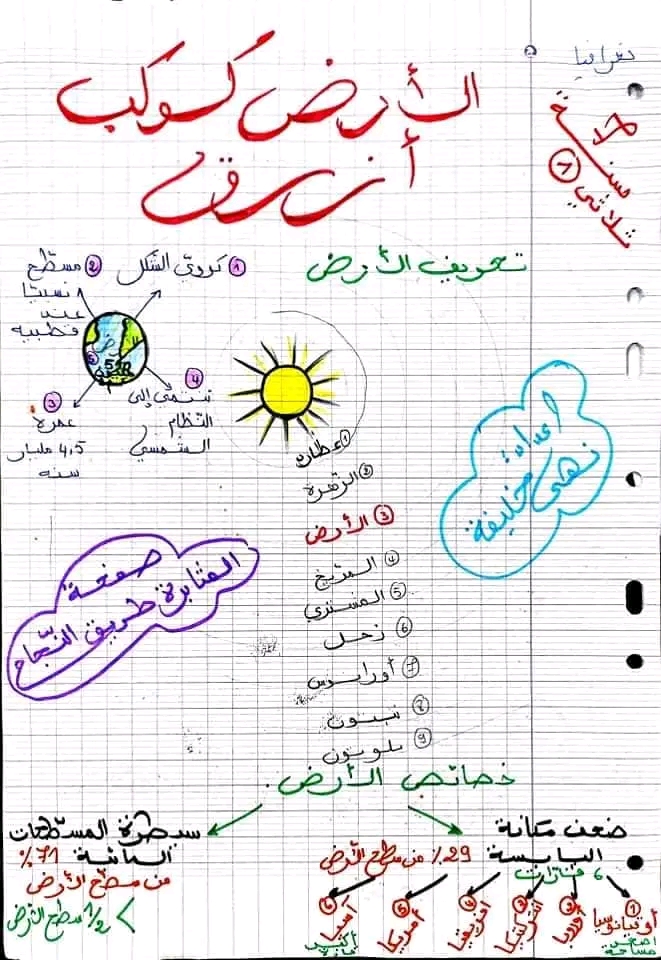 جغرافيا
الأرض كوكب
أزرق
سنة 7
ثلاثي
تعريف الأرض
① كروي الشكل
② مسطح
نسبيا
عند
قطبيه
③ عمره
4,5 مليار
سنة
④ تنتمي إلى
النظام
الشمسي
① عطارد
② الزهرة
③ الأرض
④ المريخ
⑤ المشتري
⑥ زحل
⑦ أورانوس
⑧ نبتون
⑨ بلوتون
إعداد
نهى خليفة
صفحة
المثابرة طريق النجاح
خصائص الأرض
ضعف مكانة
اليابسة
29٪ من سطح الأرض
6 قارات
① أوقيانوسيا
أصغر
مساحة
② أوروبا
③ أنتركتيكا
④ افريقيا
⑤ أمريكا
⑥ آسيا
أكبر
سيطرة المسطحات
المائية 71٪
من سطح الأرض
> 1/2 سطح الأرض